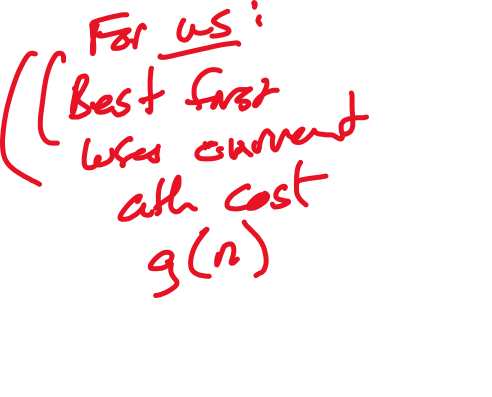 For us:
((Best first
uses current
ath cost
g(n)